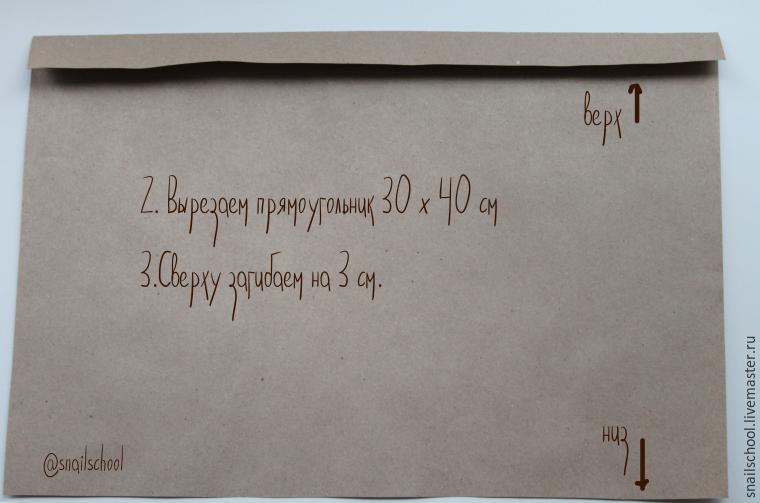 верх
2. Вырезаем прямоугольник 30 х 40 см
3.Сверху загибаем на 3 см.
низ
@snailschool
snailschool.livemaster.ru